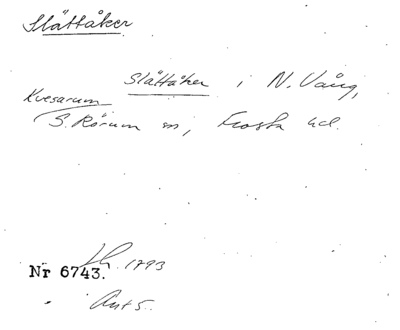 Slättåker
Slättåker i N. Vång,
Kvesarum
S. Rörum sn, Frosta hd.
Lh. 1793
Nr 6743.
Ant 5.